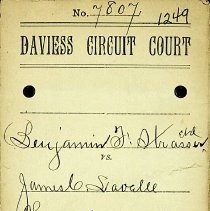 No. 7807 1249
DAVIESS CIRCUIT COURT
Benjamin F. Strasser
vs.
James C Lavalle